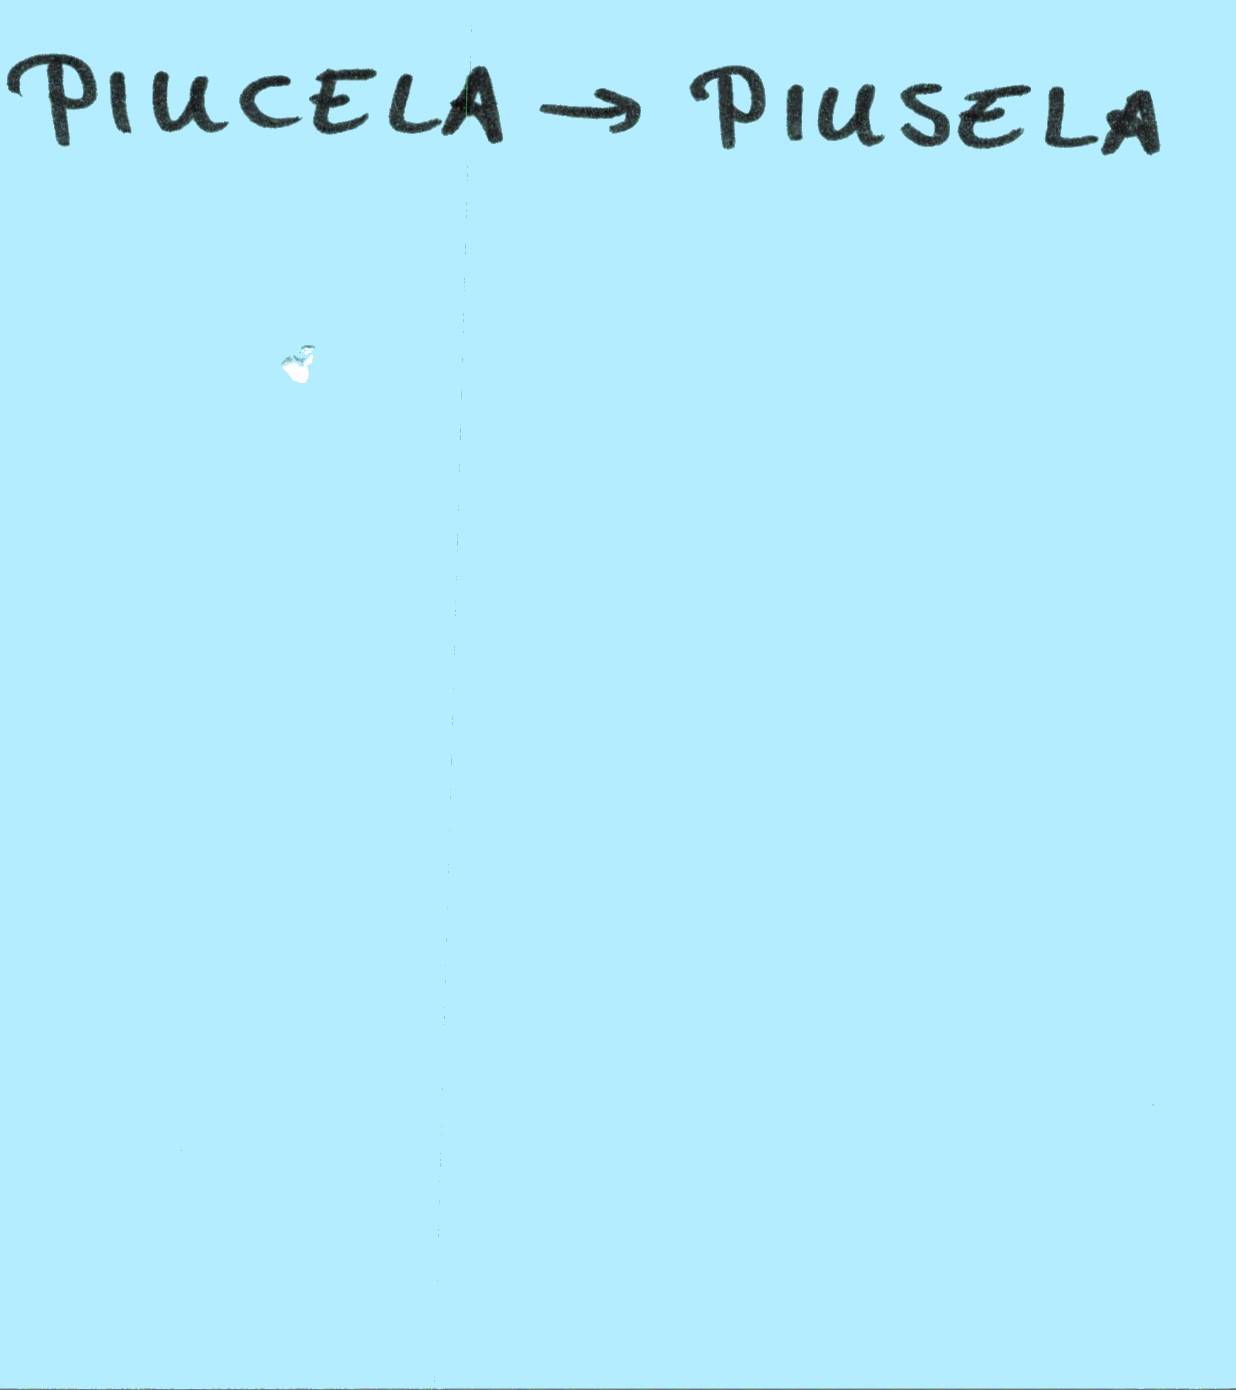 PIUCELA → PIUSELA